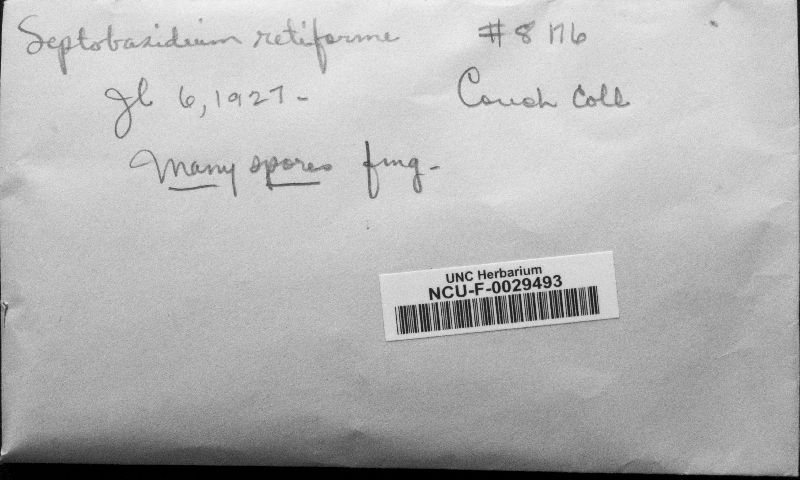 Septobasidium retiforme #8176
Jl 6, 1927- Couch Coll
Many spores fmg-
UNC Herbarium
NCU-F-0029493